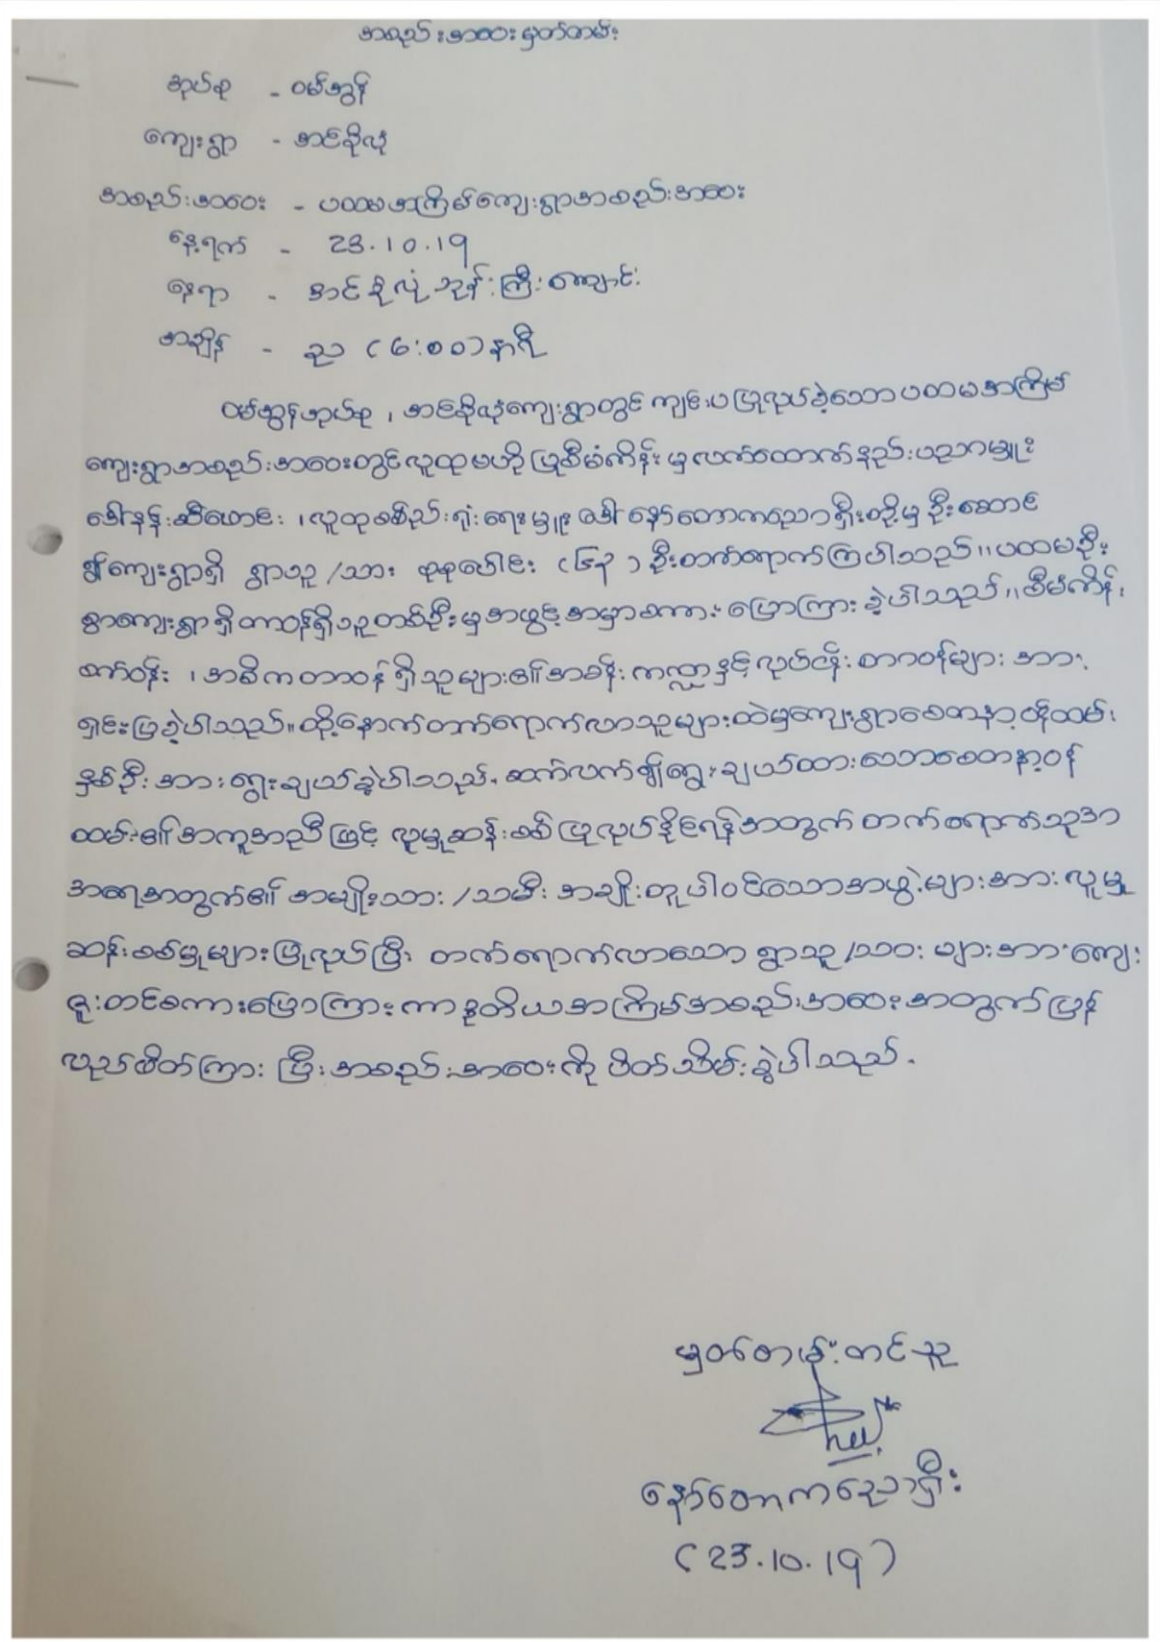 အစည်းအဝေးမှတ်တမ်း
အုပ်စု - ဝမ်အွန်
ကျေးရွာ - အင်ခိုလုံ
အစည်းအဝေး - ပထမအကြိမ်ကျေးရွာအစည်းအဝေး
နေ့ရက် - 23.10.19
နေရာ - အင်ခိုလုံဘုန်းကြီးကျောင်း
အချိန် - ည (၆:၀၀) နာရီ
ဝမ်အွန်အုပ်စု ၊ အင်ခိုလုံကျေးရွာတွင် ကျင်းပပြုလုပ်ခဲ့သော ပထမအကြိမ်
ကျေးရွာအစည်းအဝေးတွင်လူထုဗဟိုပြုစီမံကိန်းမှ လက်ထောက်နည်းပညာမှူး
ဒေါ်နန်းဆီဟောင်း ၊လူထုစည်းရုံးရေးမှူး ဒေါ်နော်တောကညောရှီးတို့မှ ဦးဆောင်
၍ကျေးရွာရှိ ရွာသူ/သား စုစုပေါင်း (၆၃) ဦးတက်ရောက်ကြပါသည်။ပထမဦး
စွာကျေးရွာရှိတာဝန်ရှိသူတစ်ဦးမှအဖွင့်အမှာစကား ပြောကြားခဲ့ပါသည်။စီမံကိန်း
ဝန်ထမ်း ၊ အဓိကတာဝန်ရှိသူများ၏အခန်းကဏ္ဍနှင့်လုပ်ငန်းတာဝန်များ အား
ရှင်းပြခဲ့ပါသည်။ထို့နောက်တက်ရောက်လာသူများထဲမှကျေးရွာစေတနာ့ဝန်ထမ်း
နှစ်ဦးအား ရွေးချယ်ခဲ့ပါသည်. ဆက်လက်၍ရွေးချယ်ထားသောစေတနာ့ဝန်
ထမ်း၏အကူအညီဖြင့် လူမှုဆန်းစစ်ပြုလုပ်နိုင်ရန်အတွက် တက်ရောက်သူအား
အရေအတွက်၏ အမျိုးသား/သမီး အချိုးတူပါဝင်သောအဖွဲ့များအားလူမှု
ဆန်းစစ်မှုများပြုလုပ်ပြီး တက်ရောက်လာသော ရွာသူ/သား များအား ကျေး
ဇူးတင်စကားပြောကြားကာ ဒုတိယအကြိမ်အစည်းအဝေးအတွက်ပြန်
လည်ဖိတ်ကြား ပြီးအစည်းအဝေးကို ပိတ်သိမ်းခဲ့ပါသည်.
မှတ်တမ်းတင်သူ
နော်တောကညောရှီး
(23.10.19)